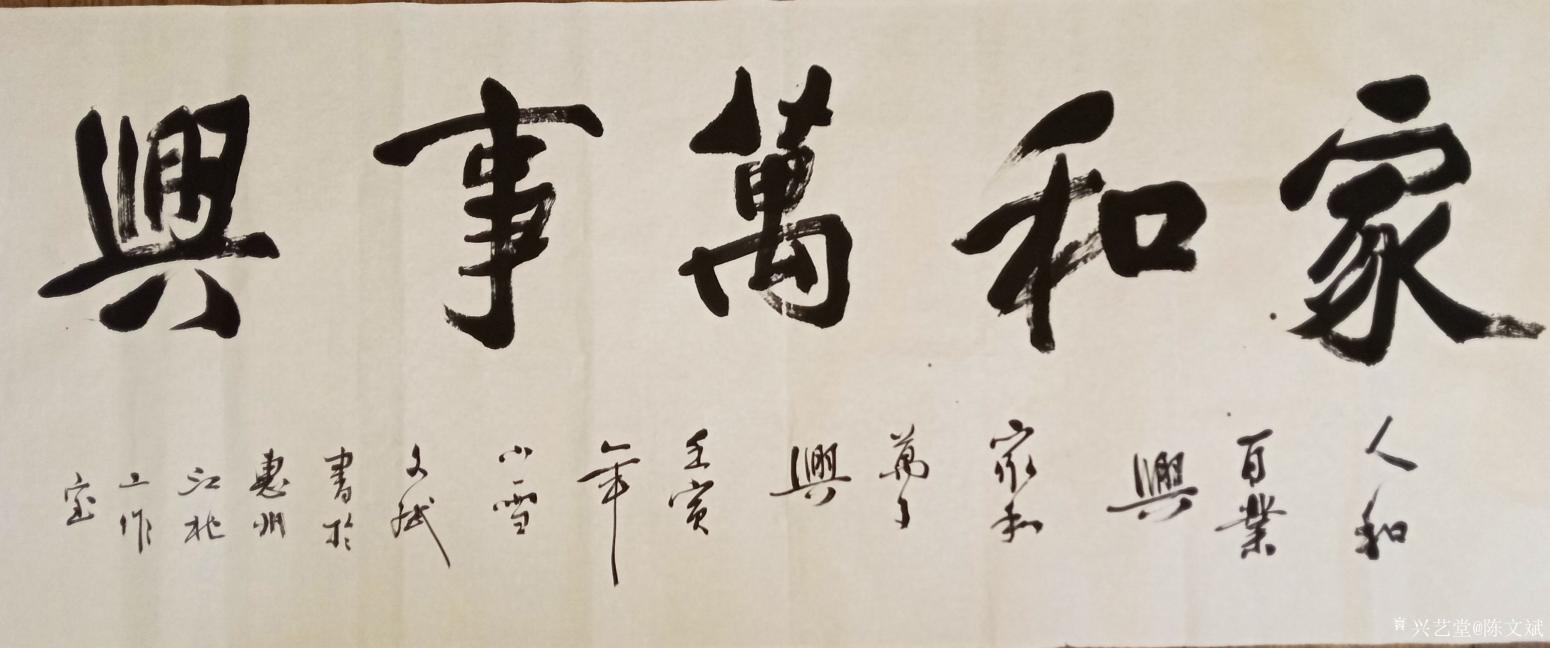 家和萬事興
人和
百業
興
家和
萬事
興
壬寅
年
小雪
文斌
書於
惠州
江北
工作
室
兴艺堂@陈文斌